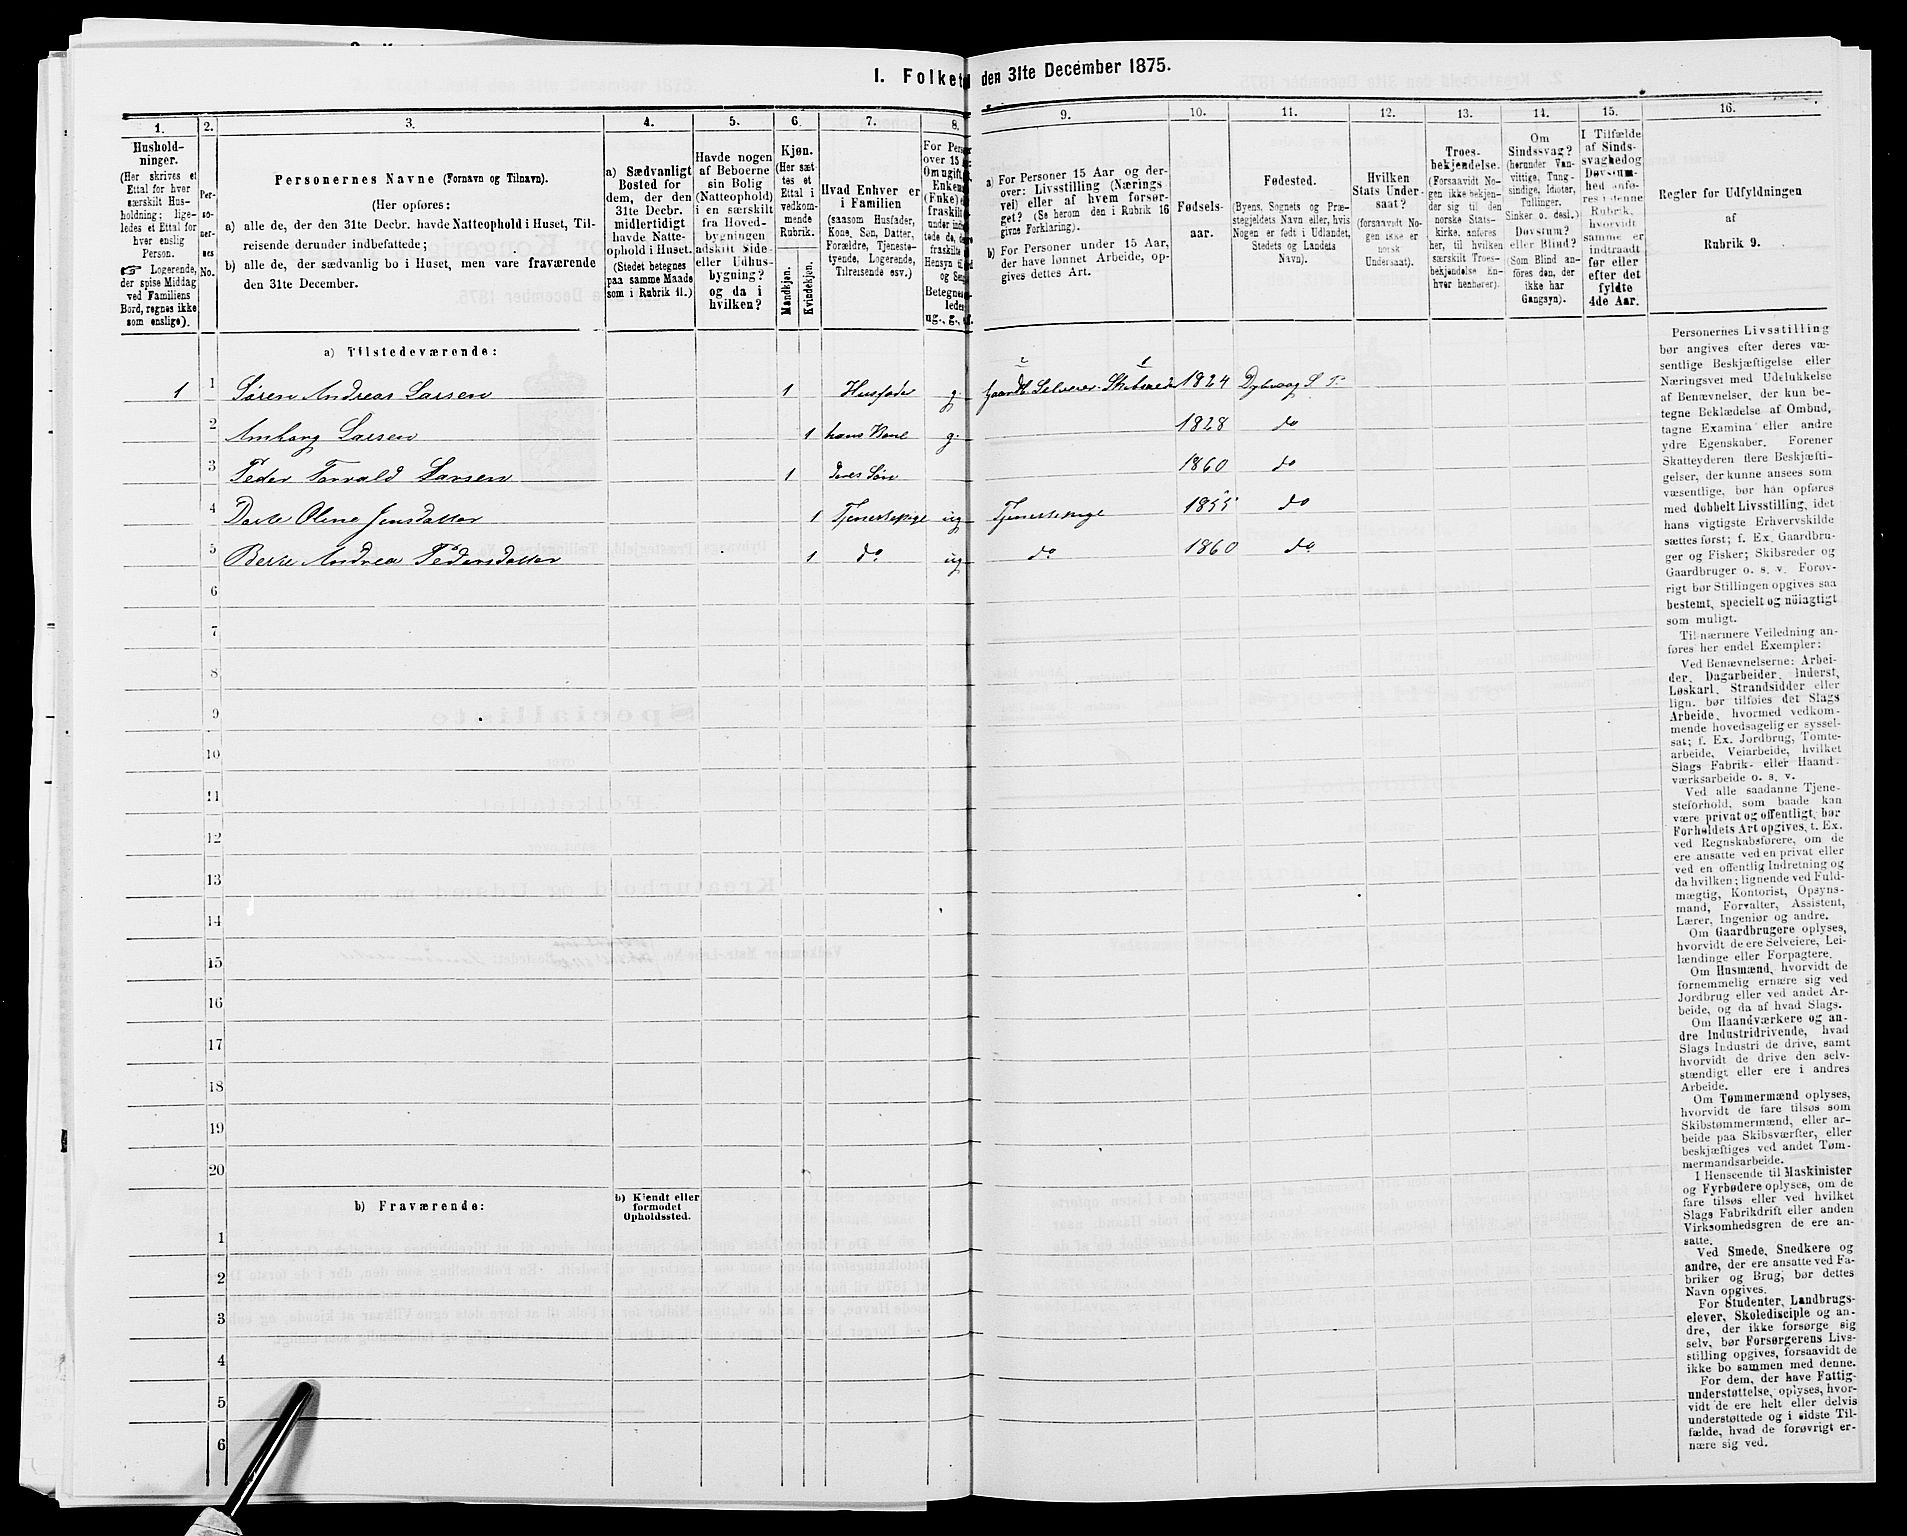 I. Folket den 31te December 1875.
1. 2. 3. 4. 5. 6. 7. 8. 9. 10. 11. 12. 13. 14. 15. 16.
Hushold-
ninger.
(Her skrives et
Ettal for hver
særskilt Hus-
holdning; lige-
ledes et Ettal for
hver enslig
Person.
☞ Logerende,
der spise Middag
ved Familiens
Bord, regnes ikke
som enslige).
Per-
so-
ner-
nes
No.
Personernes Navne (Fornavn og Tilnavn).
(Her opføres:
a) alle de, der den 31te Decbr. havde Natteophold i Huset, Til-
reisende derunder indbefattede;
b) alle de, der sædvanlig bo i Huset, men vare fraværende
den 31te December.
a) Sædvanligt
Bosted for
dem, der den
31te Decbr.
midlertidigt
havde Natte-
ophold i Huset.
(Stedet betegnes
paa samme Maade
som i Rubrik 11.)
Havde nogen
af Beboerne
sin Bolig
(Natteophold)
i en særskilt
fra Hoved-
bygningen
adskilt Side-
eller Udhus-
bygning?
og da i
hvilken?
Kjøn.
(Her sæt-
tes et
Ettal i
vedkom-
mende
Rubrik.
Mandkjøn.
Kvindekjøn.
Hvad Enhver er
i Familien
(saasom Husfader,
Kone, Søn, Datter,
Forældre, Tjeneste-
tyende, Logerende,
Tilreisende osv.)
For Pers
over 15
Om ugift
Enkem
(Enke)
fraskilt
under ind
tede de,
fraskilte
Hensyn til
og Sen
Betegnes
ledes
ug., g.,
a) For Personer 15 Aar og der-
over: Livsstilling (Nærings
vei) eller af hvem forsør-
get? (Se herom den i Rubrik 16
givne Forklaring).
b) For Personer under 15 Aar,
der have lønnet Arbeide, op-
gives dettes Art.
Fødsels-
aar.
Fødested.
(Byens, Sognets og Præ-
stegjeldets Navn eller, hvis
Nogen er født i Udlandet,
Stedets og Landets
Navn).
Hvilken
Stats Under-
saat?
(forsaavidt No-
gen ikke er
norsk
Undersaat).
Troes-
bekjendelse.
(Forsaavidt No-
gen ikke bekjen-
der sig til den
norske Stats-
kirke, anføres
her, til hvilken
særskilt Troes-
bekjendelse En-
hver henhører).
Om
Sindssvag?
(herunder Van-
vittige, Tung-
sindige, Idioter,
Tullinger,
Sinker o. desl.)
Døvstum?
eller Blind?
(Som Blind an-
føres den, der
ikke har
Gangsyn).
I Tilfælde
af Sinds-
svaghed og
Døvstum-
hed anfø-
res i denne
Rubrik,
hvorvidt
samme er
indtraadt
før eller
efter det
fyldte
4de Aar.
Regler for Udfyldningen
af
Rubrik 9.
a) Tilstedeværende:
1 1 Søren Andreas Larsen 1 Husfader g. Gaardb. Selveier. Skibsreder 1824 Dybvaag S. P.
2 Amborg Larsen 1 hans Kone g. 1828 do
3 Peder Torvald Larsen 1 Deres Søn 1860 do
4 Dorte Oline Jensdatter 1 Tjenestepige ug Tjenestepige 1855 do
5 Berte Andrea Pedersdatter 1 do. ug do. 1860 do.
6
7
8
9
10
11
12
13
14
15
16
17
18
19
20
b) Fraværende:
b) Kjendt eller
formodet
Opholdssted.
1
2
3
4
5
6
Personernes Livsstilling
bør angives efter deres væ-
sentlige Beskjæftigelse eller
Næringsvei med Udelukkelse
af Benævnelser, der kun be-
tegne Beklædelse af Ombud,
tagne Examina eller andre
ydre Egenskaber. Forener
Skatteyderen flere Beskjæfti-
gelser, der kunne ansees som
væsentlige, bør han opføres
med dobbelt Livsstilling, idet
hans vigtigste Erhvervskilde
sættes først; f. Ex. Gaardbru-
ger og Fisker; Skibsreder og
Gaardbruger o. s. v. Forøv-
rigt bør Stillingen opgives saa
bestemt, specielt og nøiagtigt
som muligt.
Til nærmere Veiledning an-
føres her endel Exempler:
Ved Benævnelserne: Arbei-
der, Dagarbeider, Inderst,
Løskarl, Strandsidder eller
lign. bør tilføies det Slags
Arbeide, hvormed vedkom-
mende hovedsagelig er syssel-
sat; f. Ex. Jordbrug, Tomte-
arbeide, Veiarbeide, hvilket
Slags Fabrik- eller Haand-
værksarbeide o. s. v.
Ved alle saadanne Tjene-
steforhold, som baade kan
være privat og offentligt, bør
Forholdets Art opgives, t. Ex.
ved Regnskabsførere, om de
ere ansatte ved en privat eller
ved en offentlig Indretning og
da hvilken; lignende ved Fuld-
mægtig, Kontorist, Opsyns-
mand, Forvalter, Assistent,
Lærer, Ingeniør og andre.
Om Gaardbrugere oplyses,
hvorvidt de ere Selveiere, Lei-
lændinge eller Forpagtere.
Om Husmænd, hvorvidt de
fornemmelig ernære sig ved
Jordbrug eller ved andet Ar-
beide, og da af hvad Slags.
Om Haandværkere og an-
dre Industridrivende, hvad
Slags Industri de drive, samt
hvorvidt de drive den selv-
stændigt eller ere i andres
Arbeide.
Om Tømmermænd oplyses,
hvorvidt de fare tilsøs som
Skibstømmermænd, eller ar-
beide paa Skibsværfter, eller
beskjæftiges ved andet Tøm-
mermandsarbeide.
I Henseende til Maskinister
og Fyrbødere oplyses, om de
fare tilsøs eller ved hvilket
Slags Fabrikdrift eller anden
Virksomhedsgren de ere an-
satte.
Ved Smede, Snedkere og
andre, der ere ansatte ved Fa-
briker og Brug, bør dettes
Navn opgives.
For Studenter, Landbrugs-
elever, Skoledisciple og an-
dre, der ikke forsørge sig
selv, bør Forsørgerens Livs-
stilling opgives, forsaavidt de
ikke bo sammen med denne.
For dem, der have Fattig-
understøttelse, oplyses, hvor-
vidt de ere helt eller delvis
understøttede og i sidste Til-
fælde, hvad de forøvrigt er-
nære sig ved.